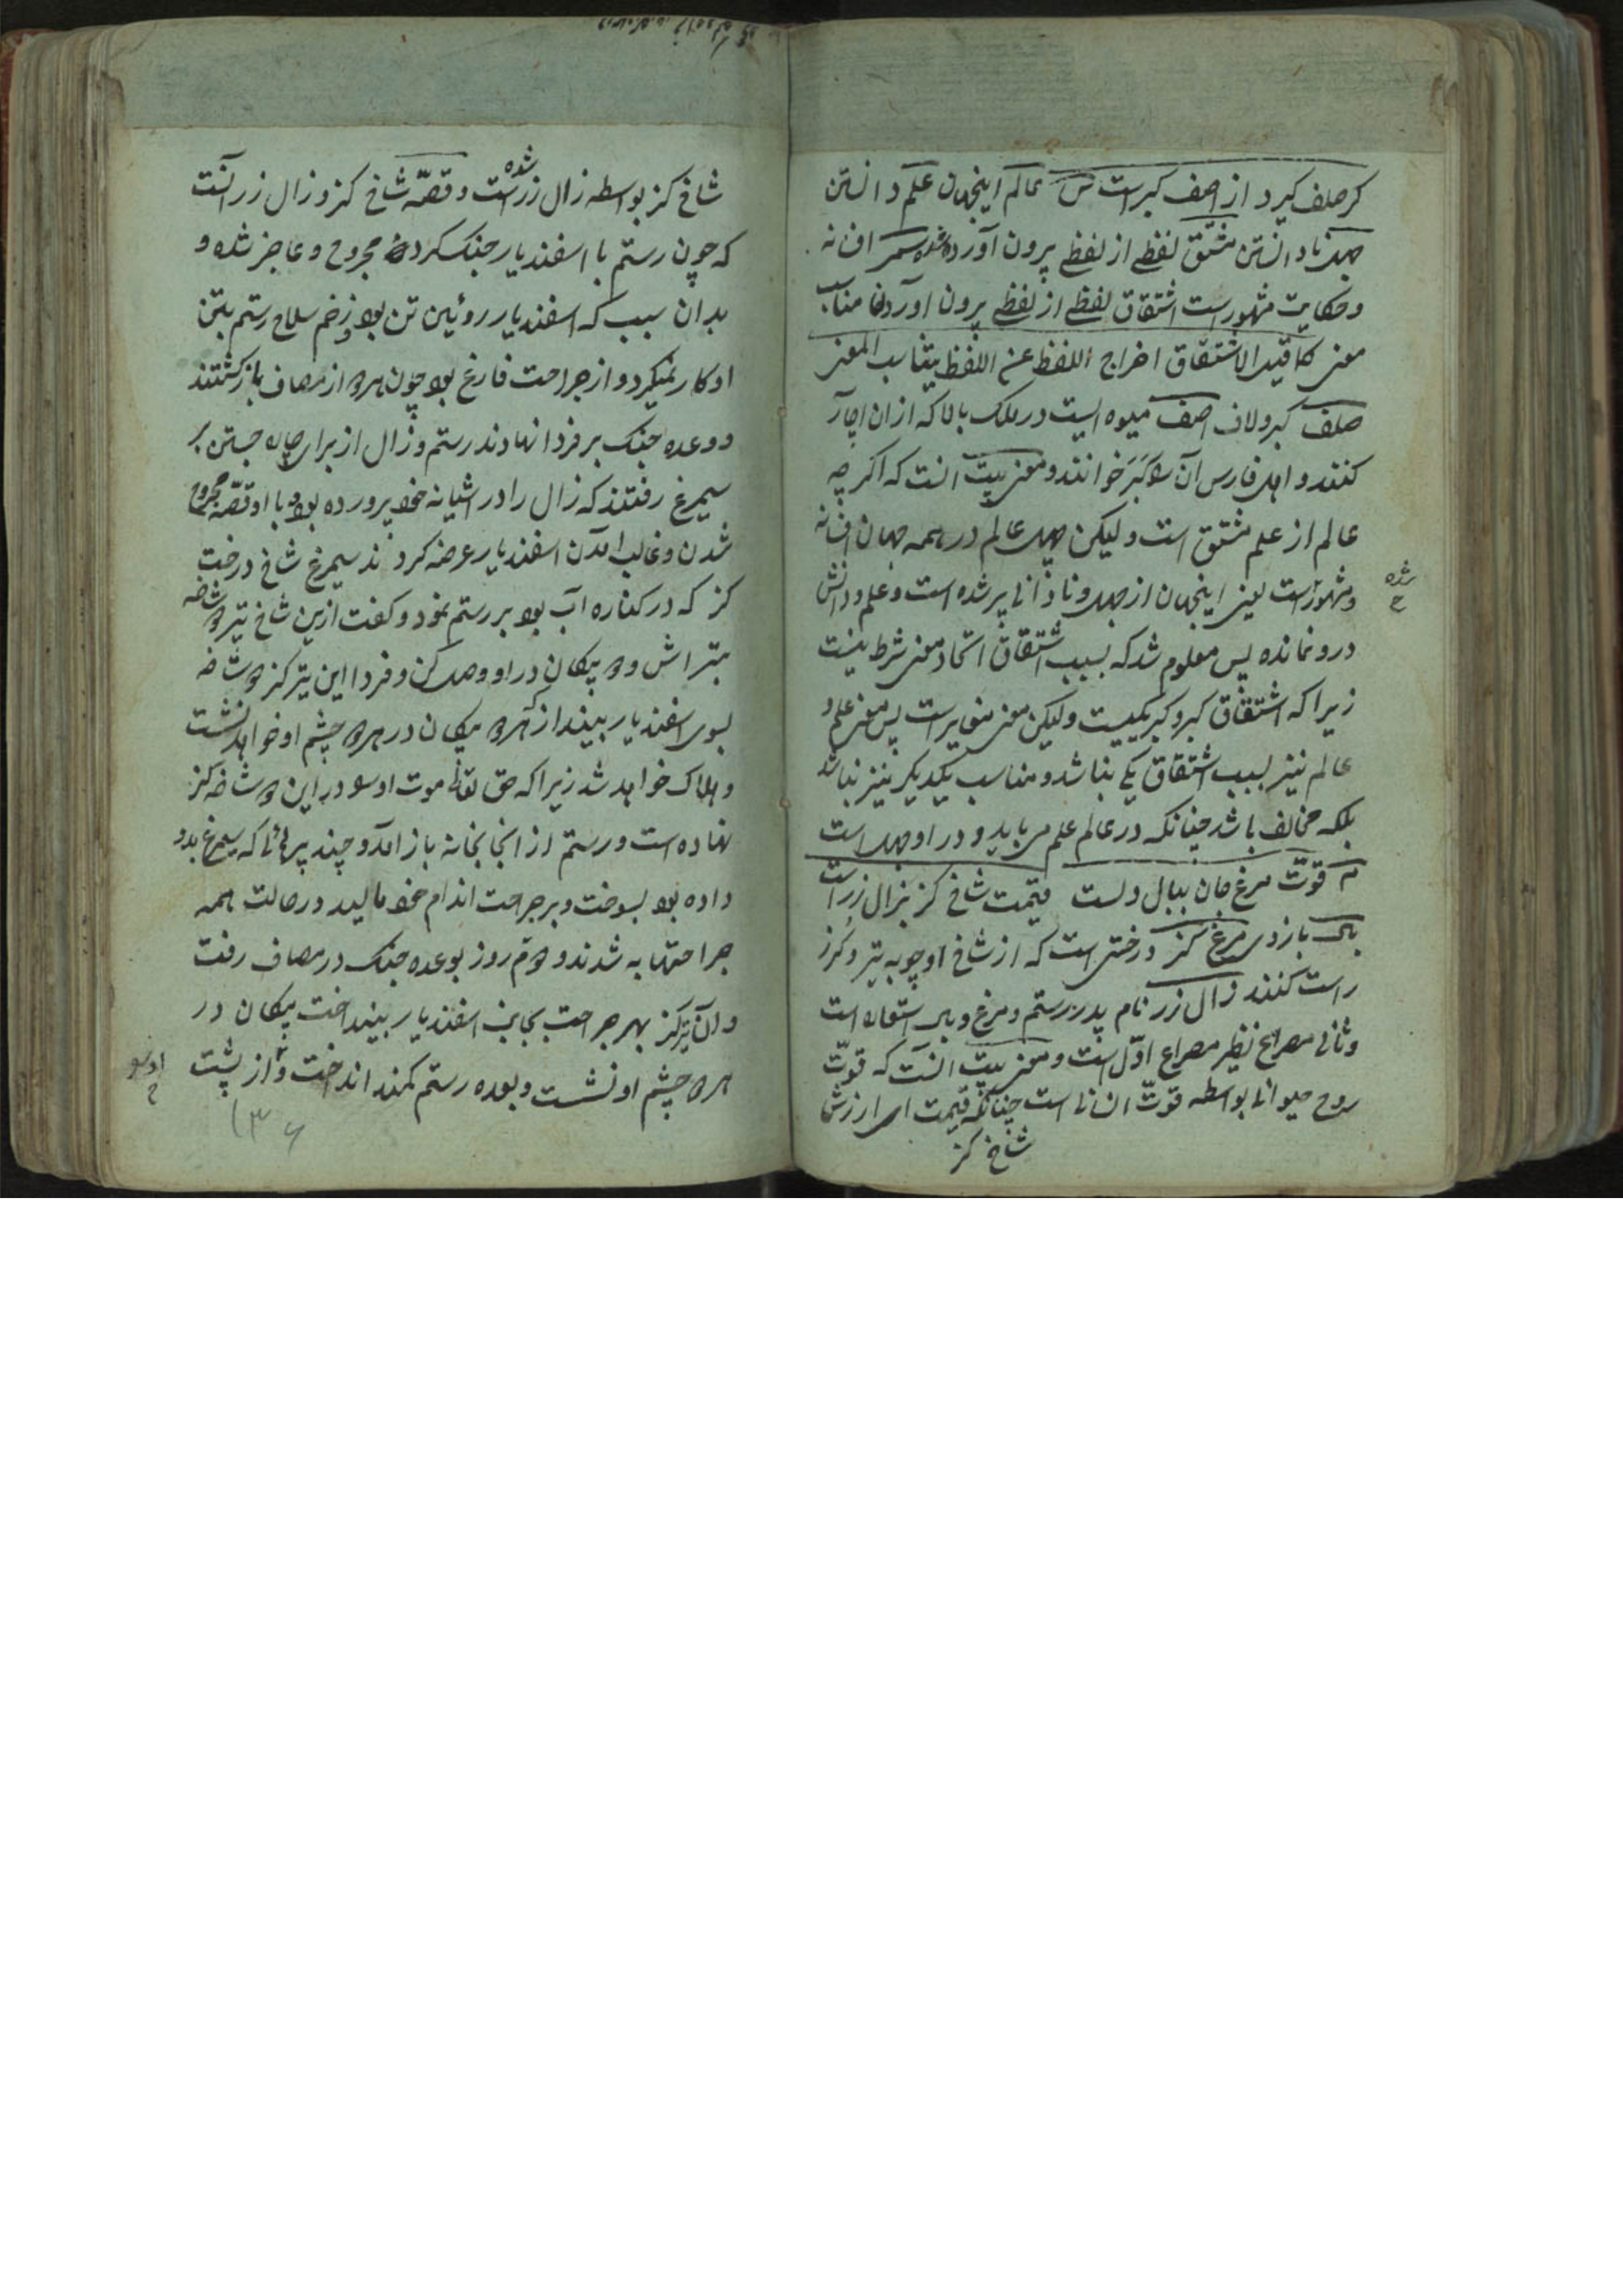 کر صلف کیرد از اصف کبرست ش عالم اینجهان علم دانستن
جهل نادانستن مشتق لفظی از لفظی بیرون آورده شده سمر افسانه
و حکایت مشهورست اشتقاق لفظی از لفظی بیرون آوردن مناسب
معنی کما قیل الاشتقاق اخراج اللفظ عن اللفظ یتناسب المعنی
صلف کبر و لاف اصف میوه ایست در ملک بالا که ازان اچار
کنند و اهل فارس آن را کبر خوانند و معنی بیت آنست که اگر چه
عالم از علم مشتق است ولیکن جهل عالم در همه جهان افسانه
و مشهورست یعنی اینجهان از جهل و نادانی پر شده است و علم و دانش
درو نمانده پس معلوم شد که بسبب اشتقاق اتحاد معنی شرط نیست
زیرا که اشتقاق کبر و کبر یکیست ولیکن معنی متغایرست پس معنی علم و
عالم نیز بسبب اشتقاق یکی نباشد و مناسب یکدیگر نیز نباشد
بلکه مخالف باشد چنانکه در عالم علم می باید و در او جهل است
م قوت مرغ جان ببال دلست قیمت شاخ کز بزال زرست
بال بازوی مرغ کز درختی است که از شاخ او چوبه تیر و کرز
راست کنند زال زر نام پدر رستم و مرغ و بال استعاره است
و ثانی مصراع نظیر مصراع اول است و معنی بیت آنست که قوت
روح حیوانی بواسطه قوت انسانی است چنانکه قیمت ای ارزش
شاخ کز
شده
ح
شاخ کز بواسطه زال زر شده است و قصه شاخ کز و زال زر آنست
که چون رستم با اسفندیار جنک کرده مجروح و عاجز شده و
بدان سبب که اسفندیار روئین تن بود و زخم سلاح رستم بتن
او کار نمیکرد و از جراحت فارغ بود چون هر دو از مصاف باز کشتند
و وعده جنک بر فردا نهادند رستم و زال از برای چاره جستن بر
سیمرغ رفتند که زال را در اشیانه خود پرورده بود و با او قصه مجروح
شدن و غالب آمدن اسفندیار عرضه کردند سیمرغ شاخ درخت
کز که در کناره آب بود بر رستم نمود و کفت ازین شاخ تیر دو شاخه
بتراش و دو پیکان در او وصل کن و فردا این تیر کز دو شاخه
بسوی اسفندیار بینداز که هر دو پیکان در هر دو چشم او خواهد نشست
و هلاک خواهد شد زیرا که حق تعالی موت او را در این دو شاخه کز
نهاده است و رستم از انجا بخانه باز آمد و چند پر هائی که سیمرغ بدو
داده بود بسوخت و بر جراحت اندام خود مالید در حالت همه
جراحتها به شدند و دوم روز بوعده جنک در مصاف رفت
و آن تیر کز بهر جراحت بجانب اسفندیار بینداخت پیکان در
هر دو چشم او نشست و بعده رستم کمند انداخت و از پشت
او را
ح
۱۳۶